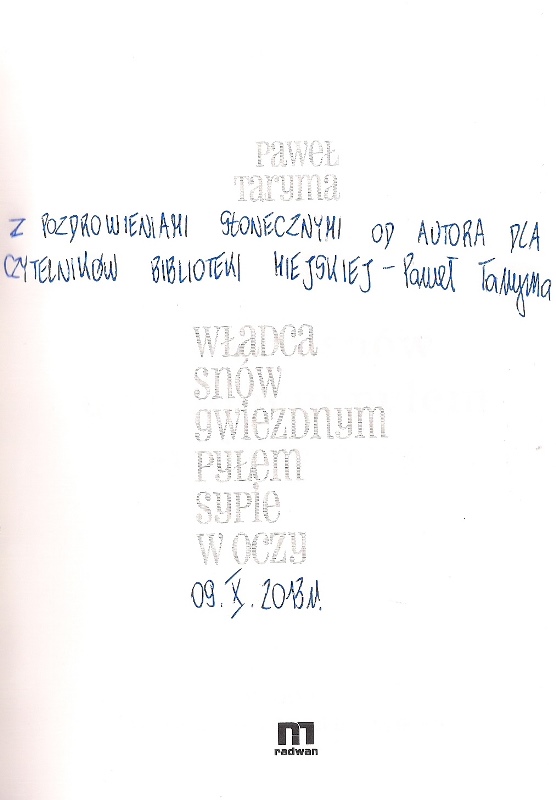 Paweł
Taryma
Z POZDROWIENIAMI SŁONECZNYMI OD AUTORA DLA
CZYTELNIKÓW BIBLIOTEKI MIEJSKIEJ – Paweł Taryma
Władca
snów
gwiezdnym
pyłem
sypie
w oczy
09. X. 2013 r.
radwan